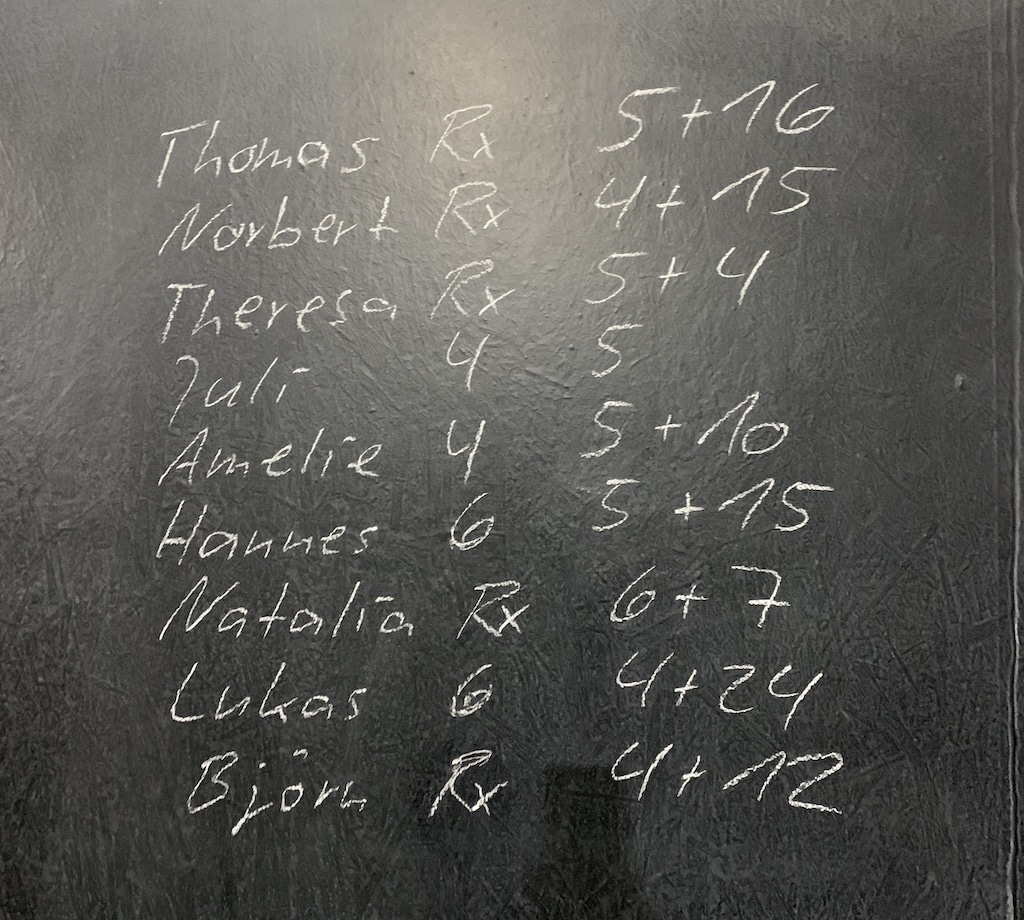 Thomas Rx 5+16
Norbert Rx 4+15
Theresa Rx 5+4
Juli 4 5
Amelie 4 5+10
Hannes 6 5+15
Natalia Rx 6+7
Lukas 6 4+24
Björn Rx 4+12